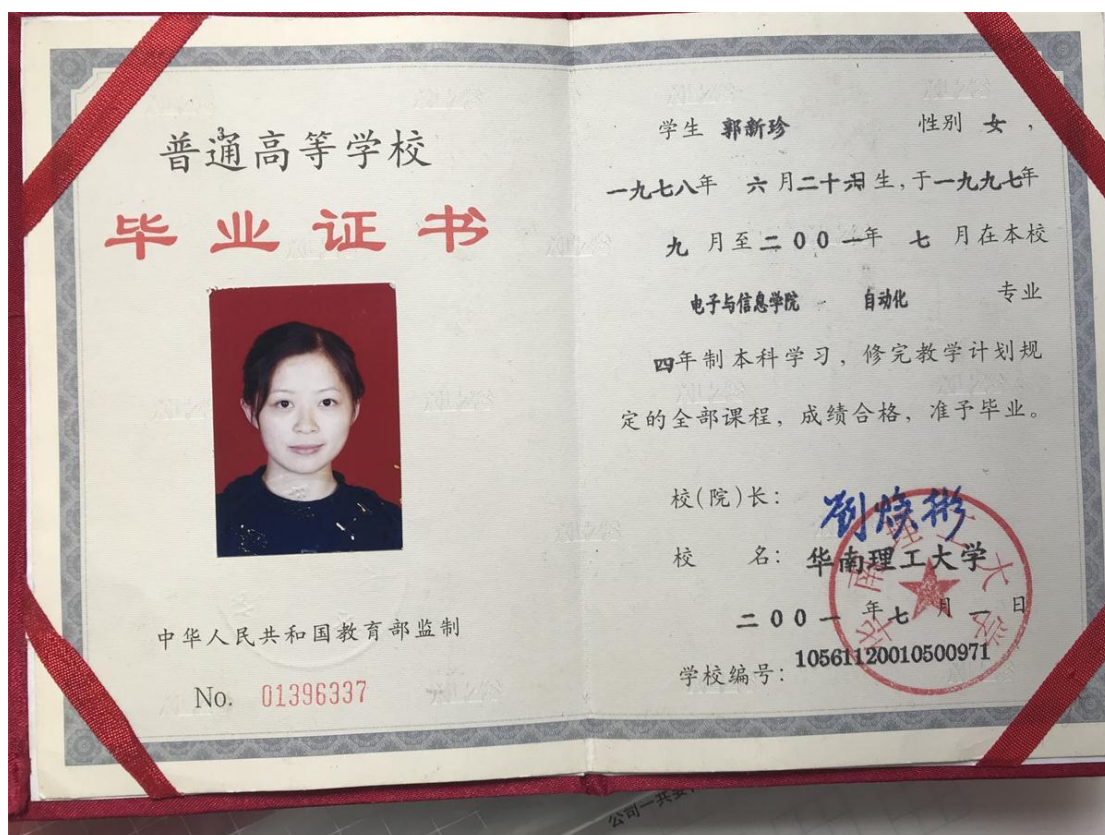 普通高等学校
毕业证书
中华人民共和国教育部监制
No. 01396337
学生 郭新珍 性别 女，
一九七八年 六月二十六日生，于一九九七年
九 月至二00一年 七 月在本校
电子与信息学院 自动化 专业
四年制本科学习，修完教学计划规
定的全部课程，成绩合格，准予毕业。
校(院)长：劉焕彬
校 名：华南理工大学
二00一 年七 月一日
学校编号：10561120010500971
华南理工大学
公司一共